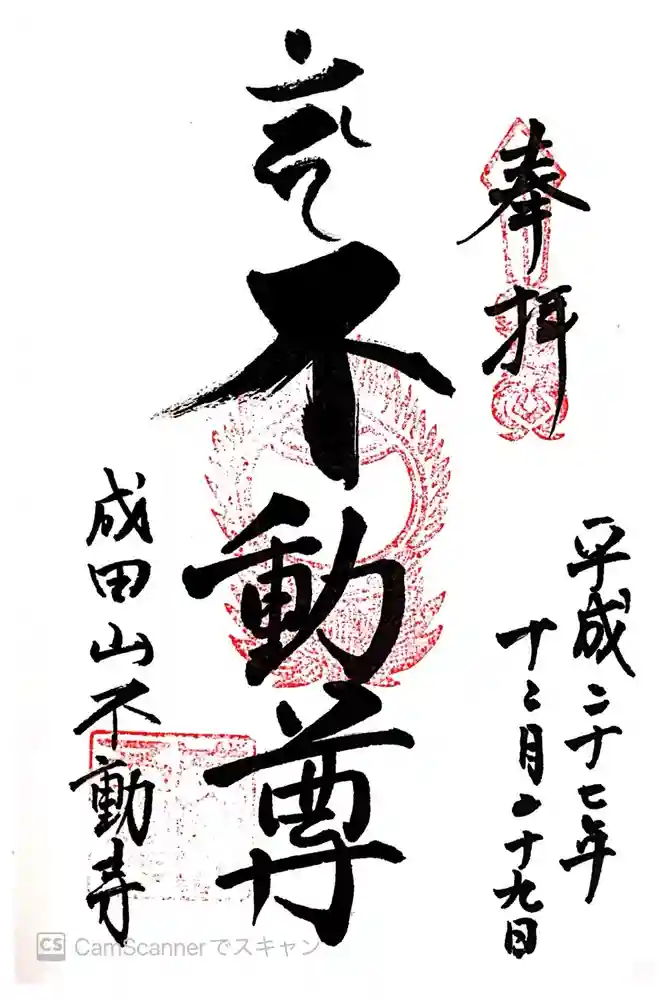 奉拝
平成二十七年
十二月二十九日
不動尊
成田山不動寺
CS CamScannerでスキャン